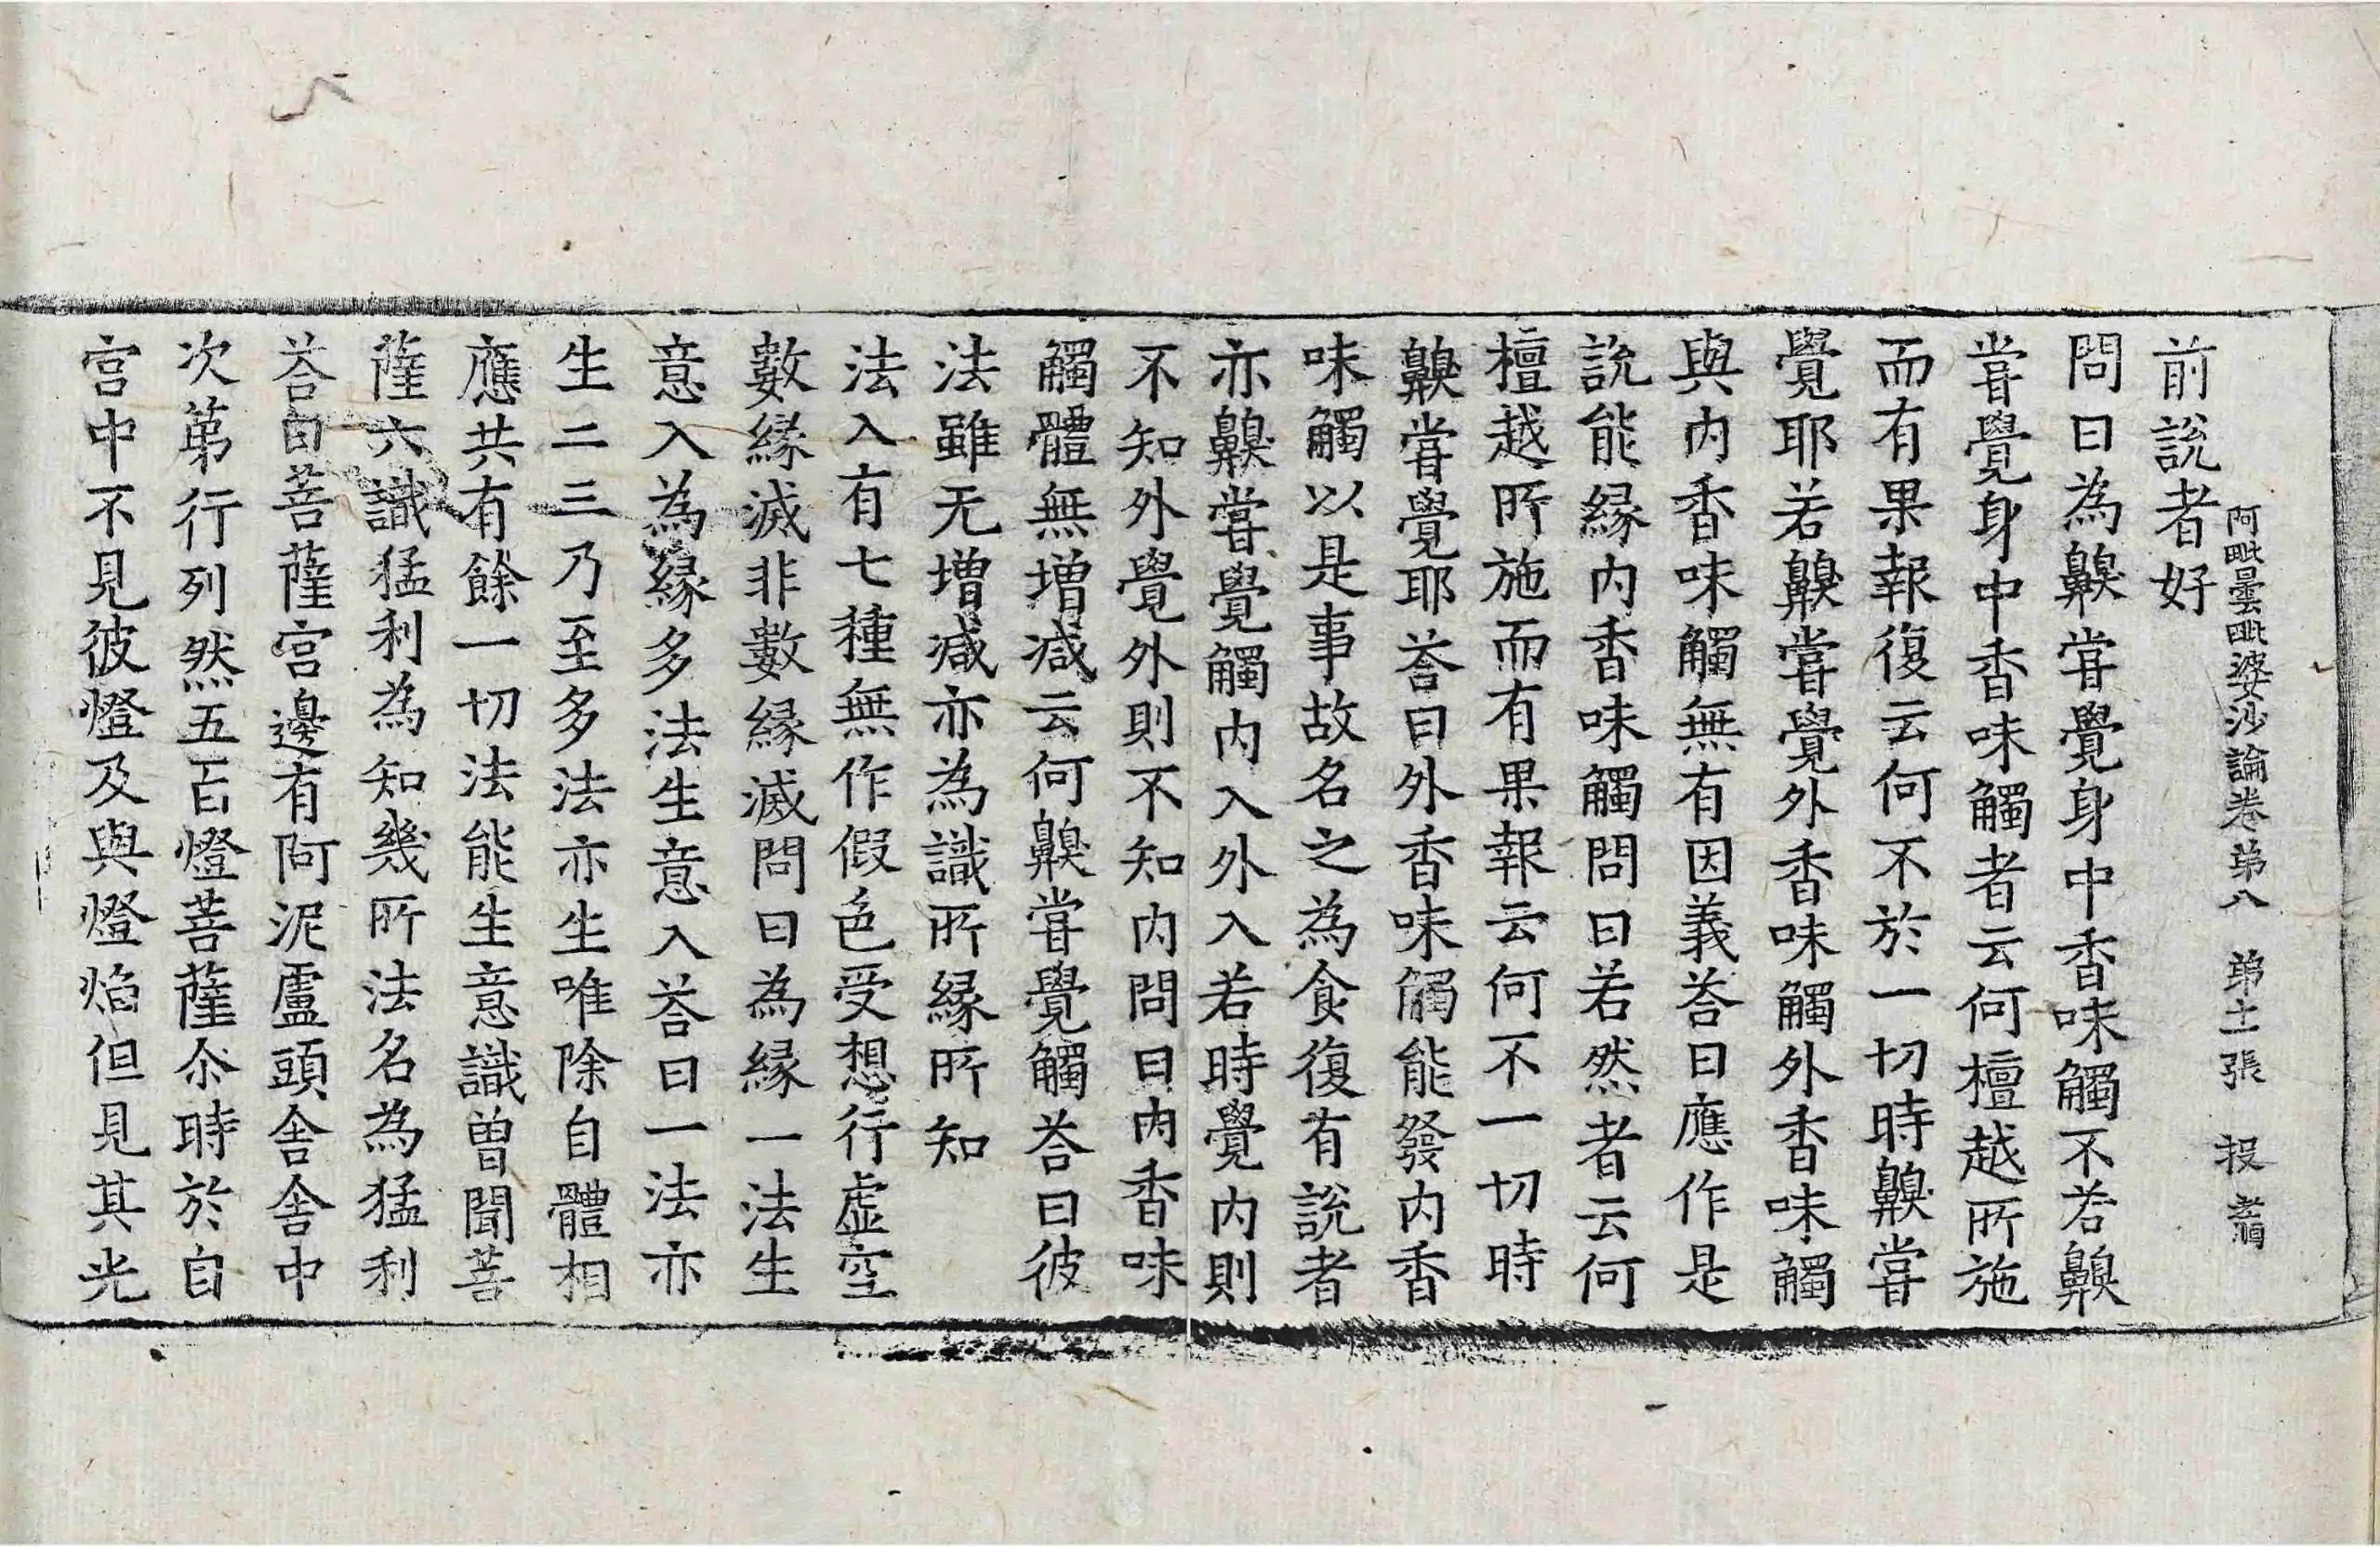 阿毗曇毗婆沙論卷苐八　苐十二張　投
前說者好
問曰為齅甞覺身中香味觸不若齅
甞覺身中香味觸者云何檀越所施
而有果報復云何不於一切時齅甞
覺耶若齅甞覺外香味觸外香味觸
與內香味觸無有因義荅曰應作是
說能緣內香味觸問曰若然者云何
檀越所施而有果報云何不一切時
齅甞覺耶荅曰外香味觸能發內香
味觸以是事故名之為食復有說者
亦齅甞覺觸內入外入若時覺內則
不知外覺外則不知內問曰內香味
觸體無增減云何齅甞覺觸荅曰彼
法雖无增減亦為識所緣所知
法入有七種無作假色受想行虛空
數緣滅非數緣滅問曰為緣一法生
意入為緣多法生意入荅曰一法亦
生二三乃至多法亦生唯除自體相
應共有餘一切法能生意識曾聞菩
薩六識猛利為知幾所法名為猛利
荅曰菩薩宮邊有阿泥盧頭舍舍中
次苐行列然五百燈菩薩尒時於自
宮中不見彼燈及與燈焰但見其光